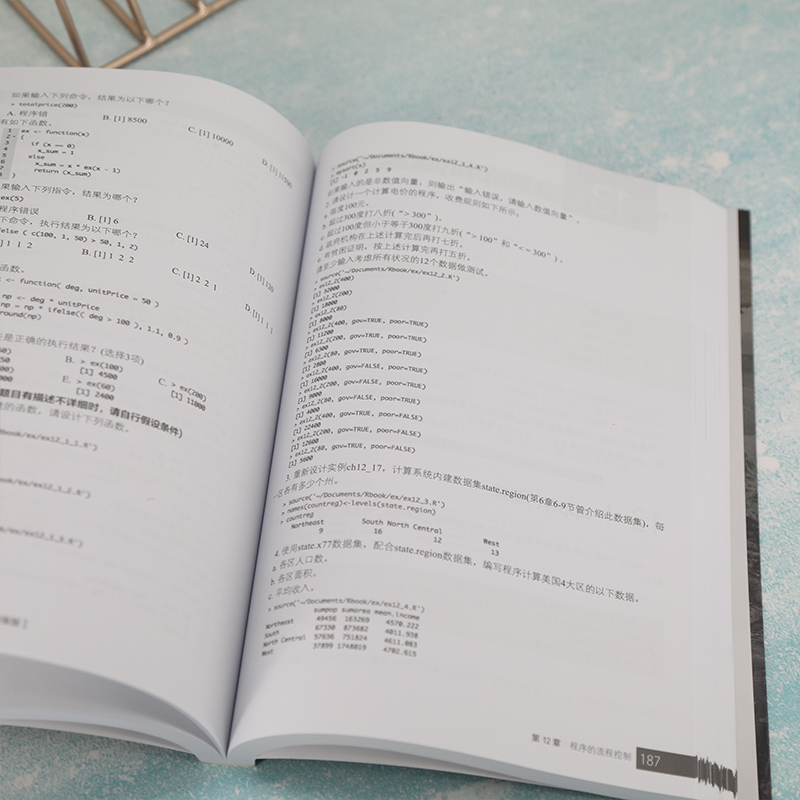 如果输入下列命令，结果为以下哪个？
> totalprice(200)
A. 程序错
B. [1] 8500
C. [1] 10000
D. [1] 11500
有如下函数。
ex <- function(x)
if (x == 0)
x_sum = 1
else
x_sum = x * ex(x - 1)
return (x_sum)
果输入下列指令，结果为哪个？
ex(5)
程序错误
B. [1] 6
C. [1] 24
D. [1] 120
下命令，执行结果为以下哪个？
felse ( c(100, 1, 50) > 50, 1, 2)
] 1 1 2
B. [1] 1 2 2
C. [1] 2 2 1
D. [1] 1 1
函数。
<- function( deg, unitPrice = 50 )
np <- deg * unitPrice
np = np * ifelse(( deg > 100 ), 1.1, 0.9 )
round(np)
些是正确的执行结果？(选择3项)
B. > ex(100)
[1] 4500
C. > ex(200)
[1] 11000
E. > ex(60)
[1] 2400
题目有描述不详细时，请自行假设条件)
数的函数，请设计下列函数。
book/ex/ex12_1_1.R')
book/ex/ex12_1_2.R')
book/ex/ex12_1_3.R')
> source('~/Documents/Rbook/ex/ex12_1_4.R')
> mysort(x)
[1] -1 0 2 5 9
如果输入的是非数值向量，则输出“输入错误，请输入数值向量”。
2. 请设计一个计算电价的程序，收费规则如下所示：
a. 每度100元。
b. 超过300度打八折(“> 300”)。
c. 超过100度但小于等于300度打九折(“> 100”和“<=300”)。
d. 政府机构在上述计算完后再打七折。
e. 有贫困证明，按上述计算完再打五折。
请至少输入考虑所有状况的12个数据做测试。
> source('~/Documents/Rbook/ex/ex12_2.R')
> ex12_2(400)
[1] 32000
> ex12_2(200)
[1] 18000
> ex12_2(80)
[1] 8000
> ex12_2(400, gov=TRUE, poor=TRUE)
[1] 11200
> ex12_2(200, gov=TRUE, poor=TRUE)
[1] 6300
> ex12_2(80, gov=TRUE, poor=TRUE)
[1] 2800
> ex12_2(400, gov=FALSE, poor=TRUE)
[1] 16000
> ex12_2(200, gov=FALSE, poor=TRUE)
[1] 9000
> ex12_2(80, gov=FALSE, poor=TRUE)
[1] 4000
> ex12_2(400, gov=TRUE, poor=FALSE)
[1] 22400
> ex12_2(200, gov=TRUE, poor=FALSE)
[1] 12600
> ex12_2(80, gov=TRUE, poor=FALSE)
[1] 5600
3. 重新设计实例ch12_17，计算系统内建数据集state.region(第6章6-9节曾介绍此数据集)，每
一区各有多少个州。
> source('~/Documents/Rbook/ex/ex12_3.R')
> names(countreg)<-levels(state.region)
> countreg
Northeast South North Central West
9 16 12 13
4. 使用state.x77数据集，配合state.region数据集，编写程序计算美国4大区的以下数据。
a. 各区人口数。
b. 各区面积。
c. 平均收入。
> source('~/Documents/Rbook/ex/ex12_4.R')
sumpop sumarea mean.income
Northeast 49456 163269 4570.222
South 67330 873682 4011.938
North Central 57636 751824 4611.083
West 37899 1748019 4702.615
第 12 章 程序的流程控制 187